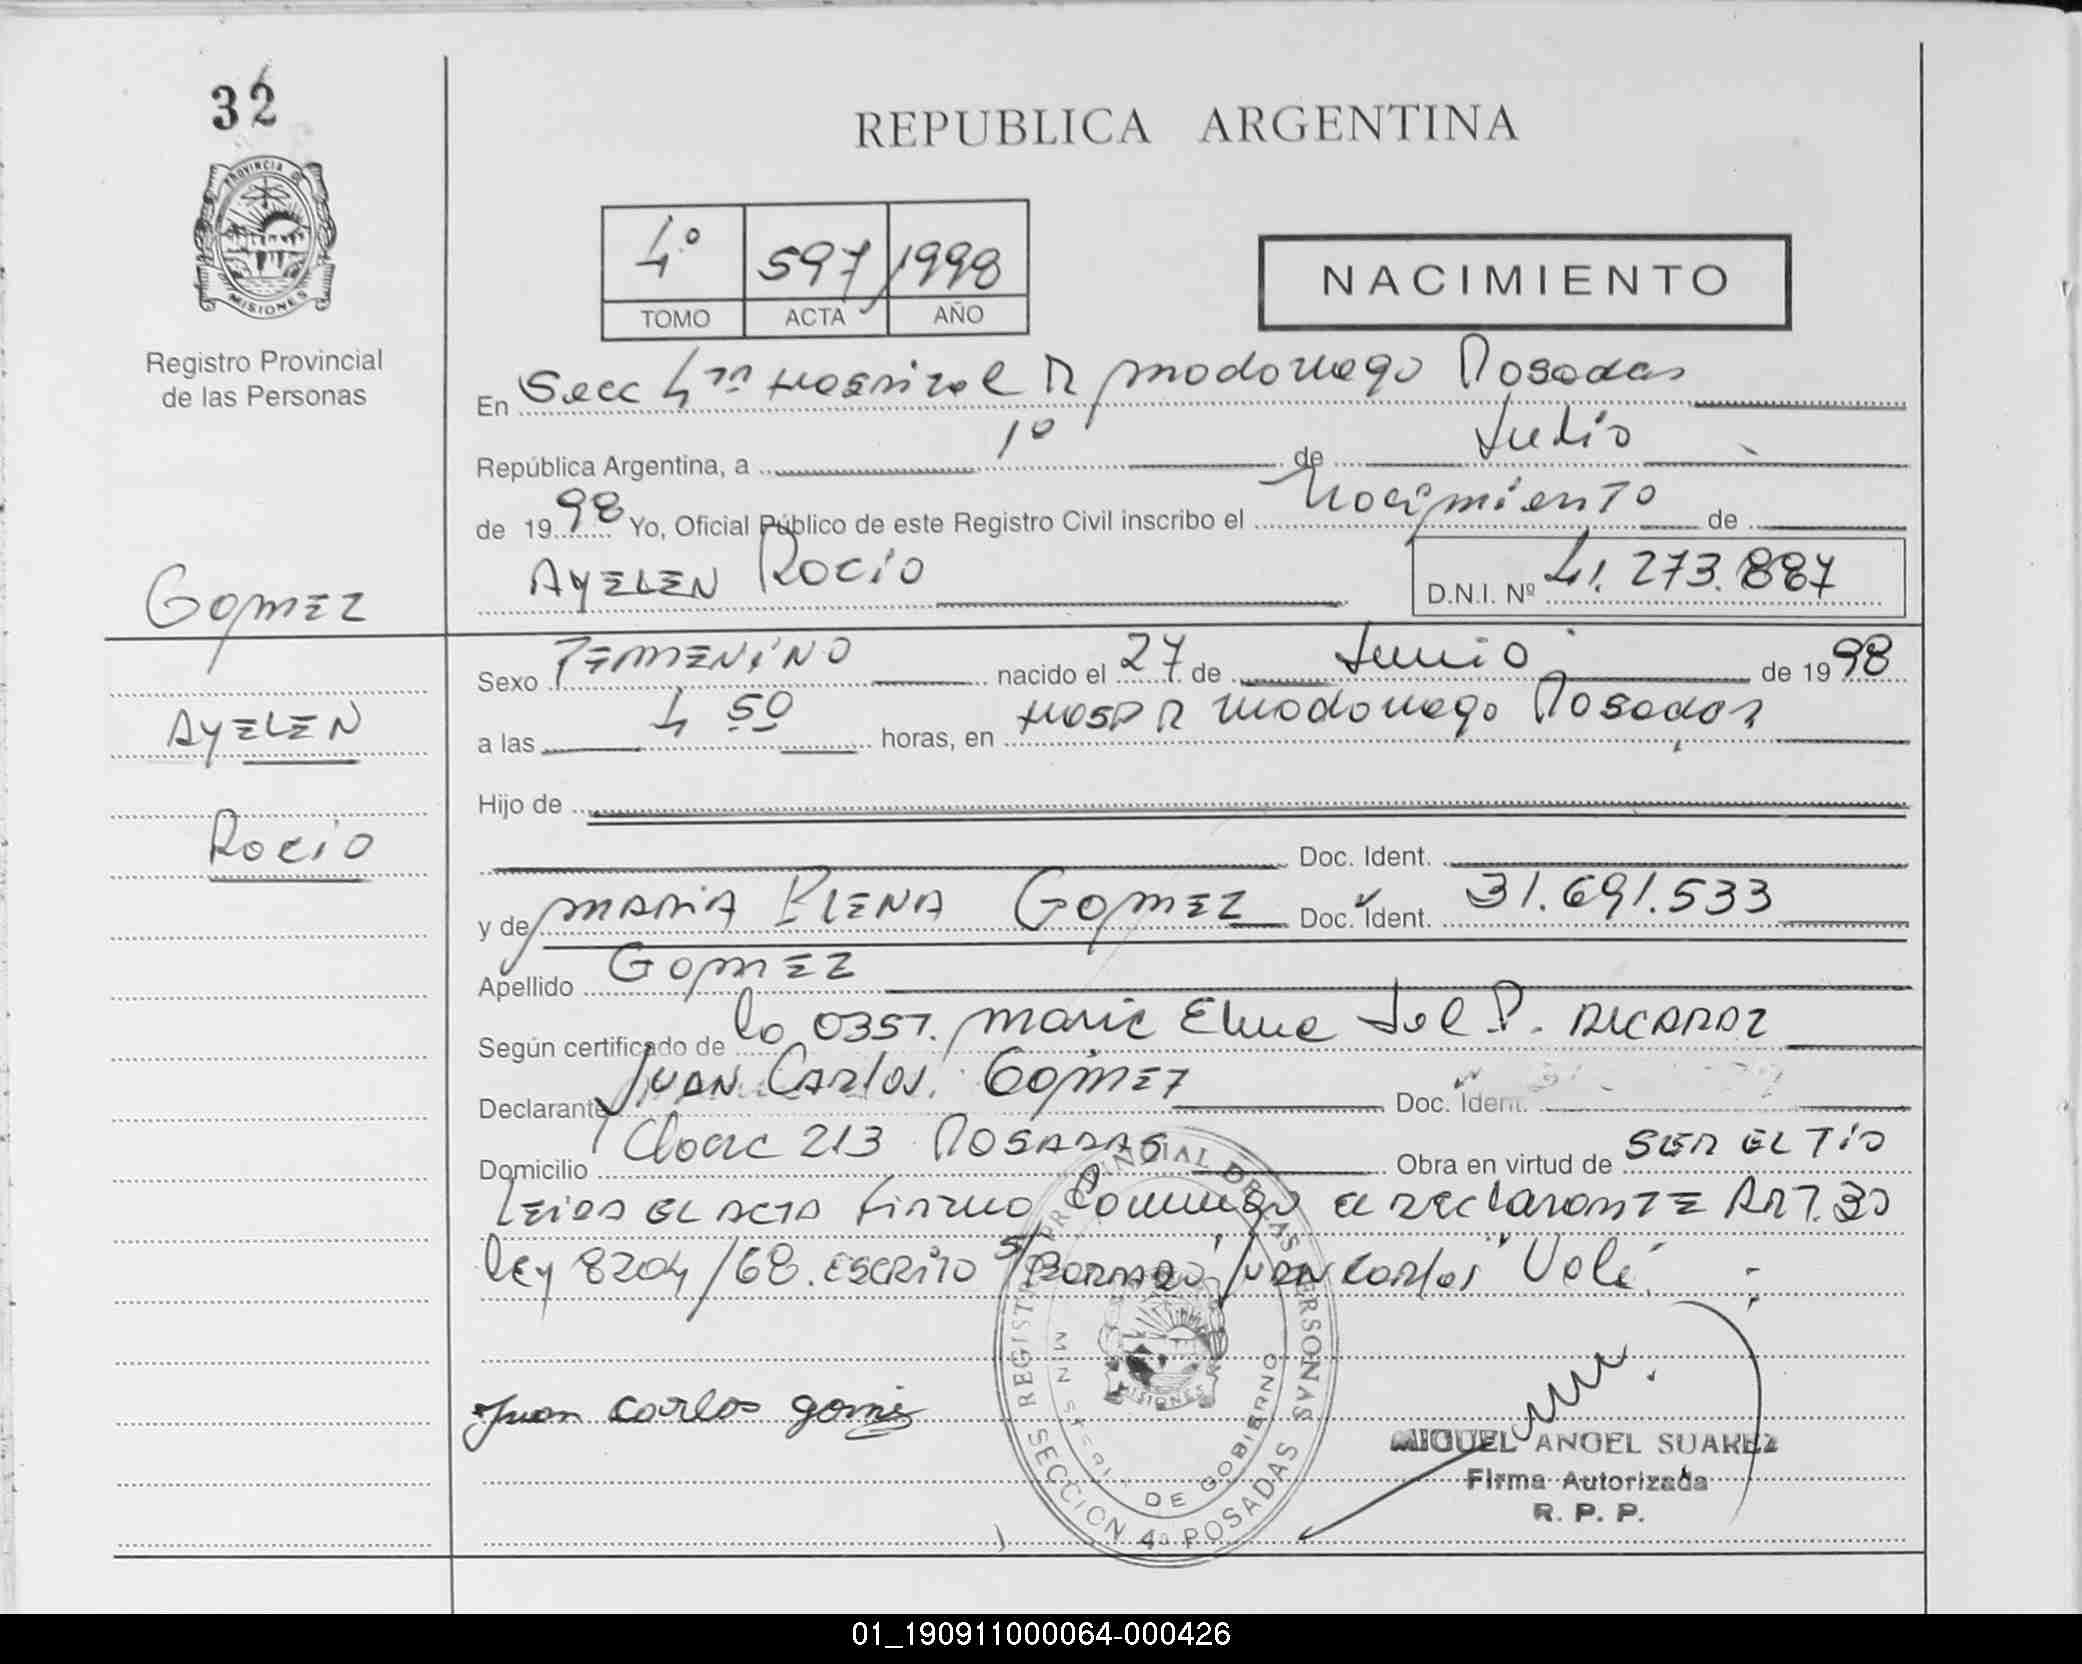 32
REPUBLICA ARGENTINA
PROVINCIA DE
MISIONES
4º 597/1998
TOMO ACTA AÑO
NACIMIENTO
Registro Provincial
de las Personas
En Secc 4ta Hospital R Madariaga Posadas
República Argentina, a 1º de Julio
de 1998 Yo, Oficial Público de este Registro Civil inscribo el Nacimiento de
AYELEN ROCIO D.N.I. Nº 41.273.887
GOMEZ
AYELEN
ROCIO
Sexo FEMENINO nacido el 27 de Junio de 1998
a las 4 50 horas, en Hosp R Madariaga Posadas
Hijo de
Doc. Ident.
y de MARIA ELENA GOMEZ Doc. Ident. 31.691.533
Apellido GOMEZ
Según certificado de la OBST. Maria Elena del P. ALCARAZ
Declarante JUAN CARLOS GOMEZ Doc. Ident.
Domicilio 213 POSADAS Obra en virtud de SER EL TIO
LEIDA EL ACTA FIRMO Conmigo el declarante ART. 30
Ley 8204/68. ESCRITO S/BORRADO "JUAN Carlos" Vale
Juan Carlos gomes
REGISTRO PROVINCIAL DE LAS PERSONAS
MINISTERIO DE GOBIERNO
MISIONES
SECCION 4a POSADAS
MIGUEL ANGEL SUAREZ
Firma Autorizada
R. P. P.
01_190911000064-000426